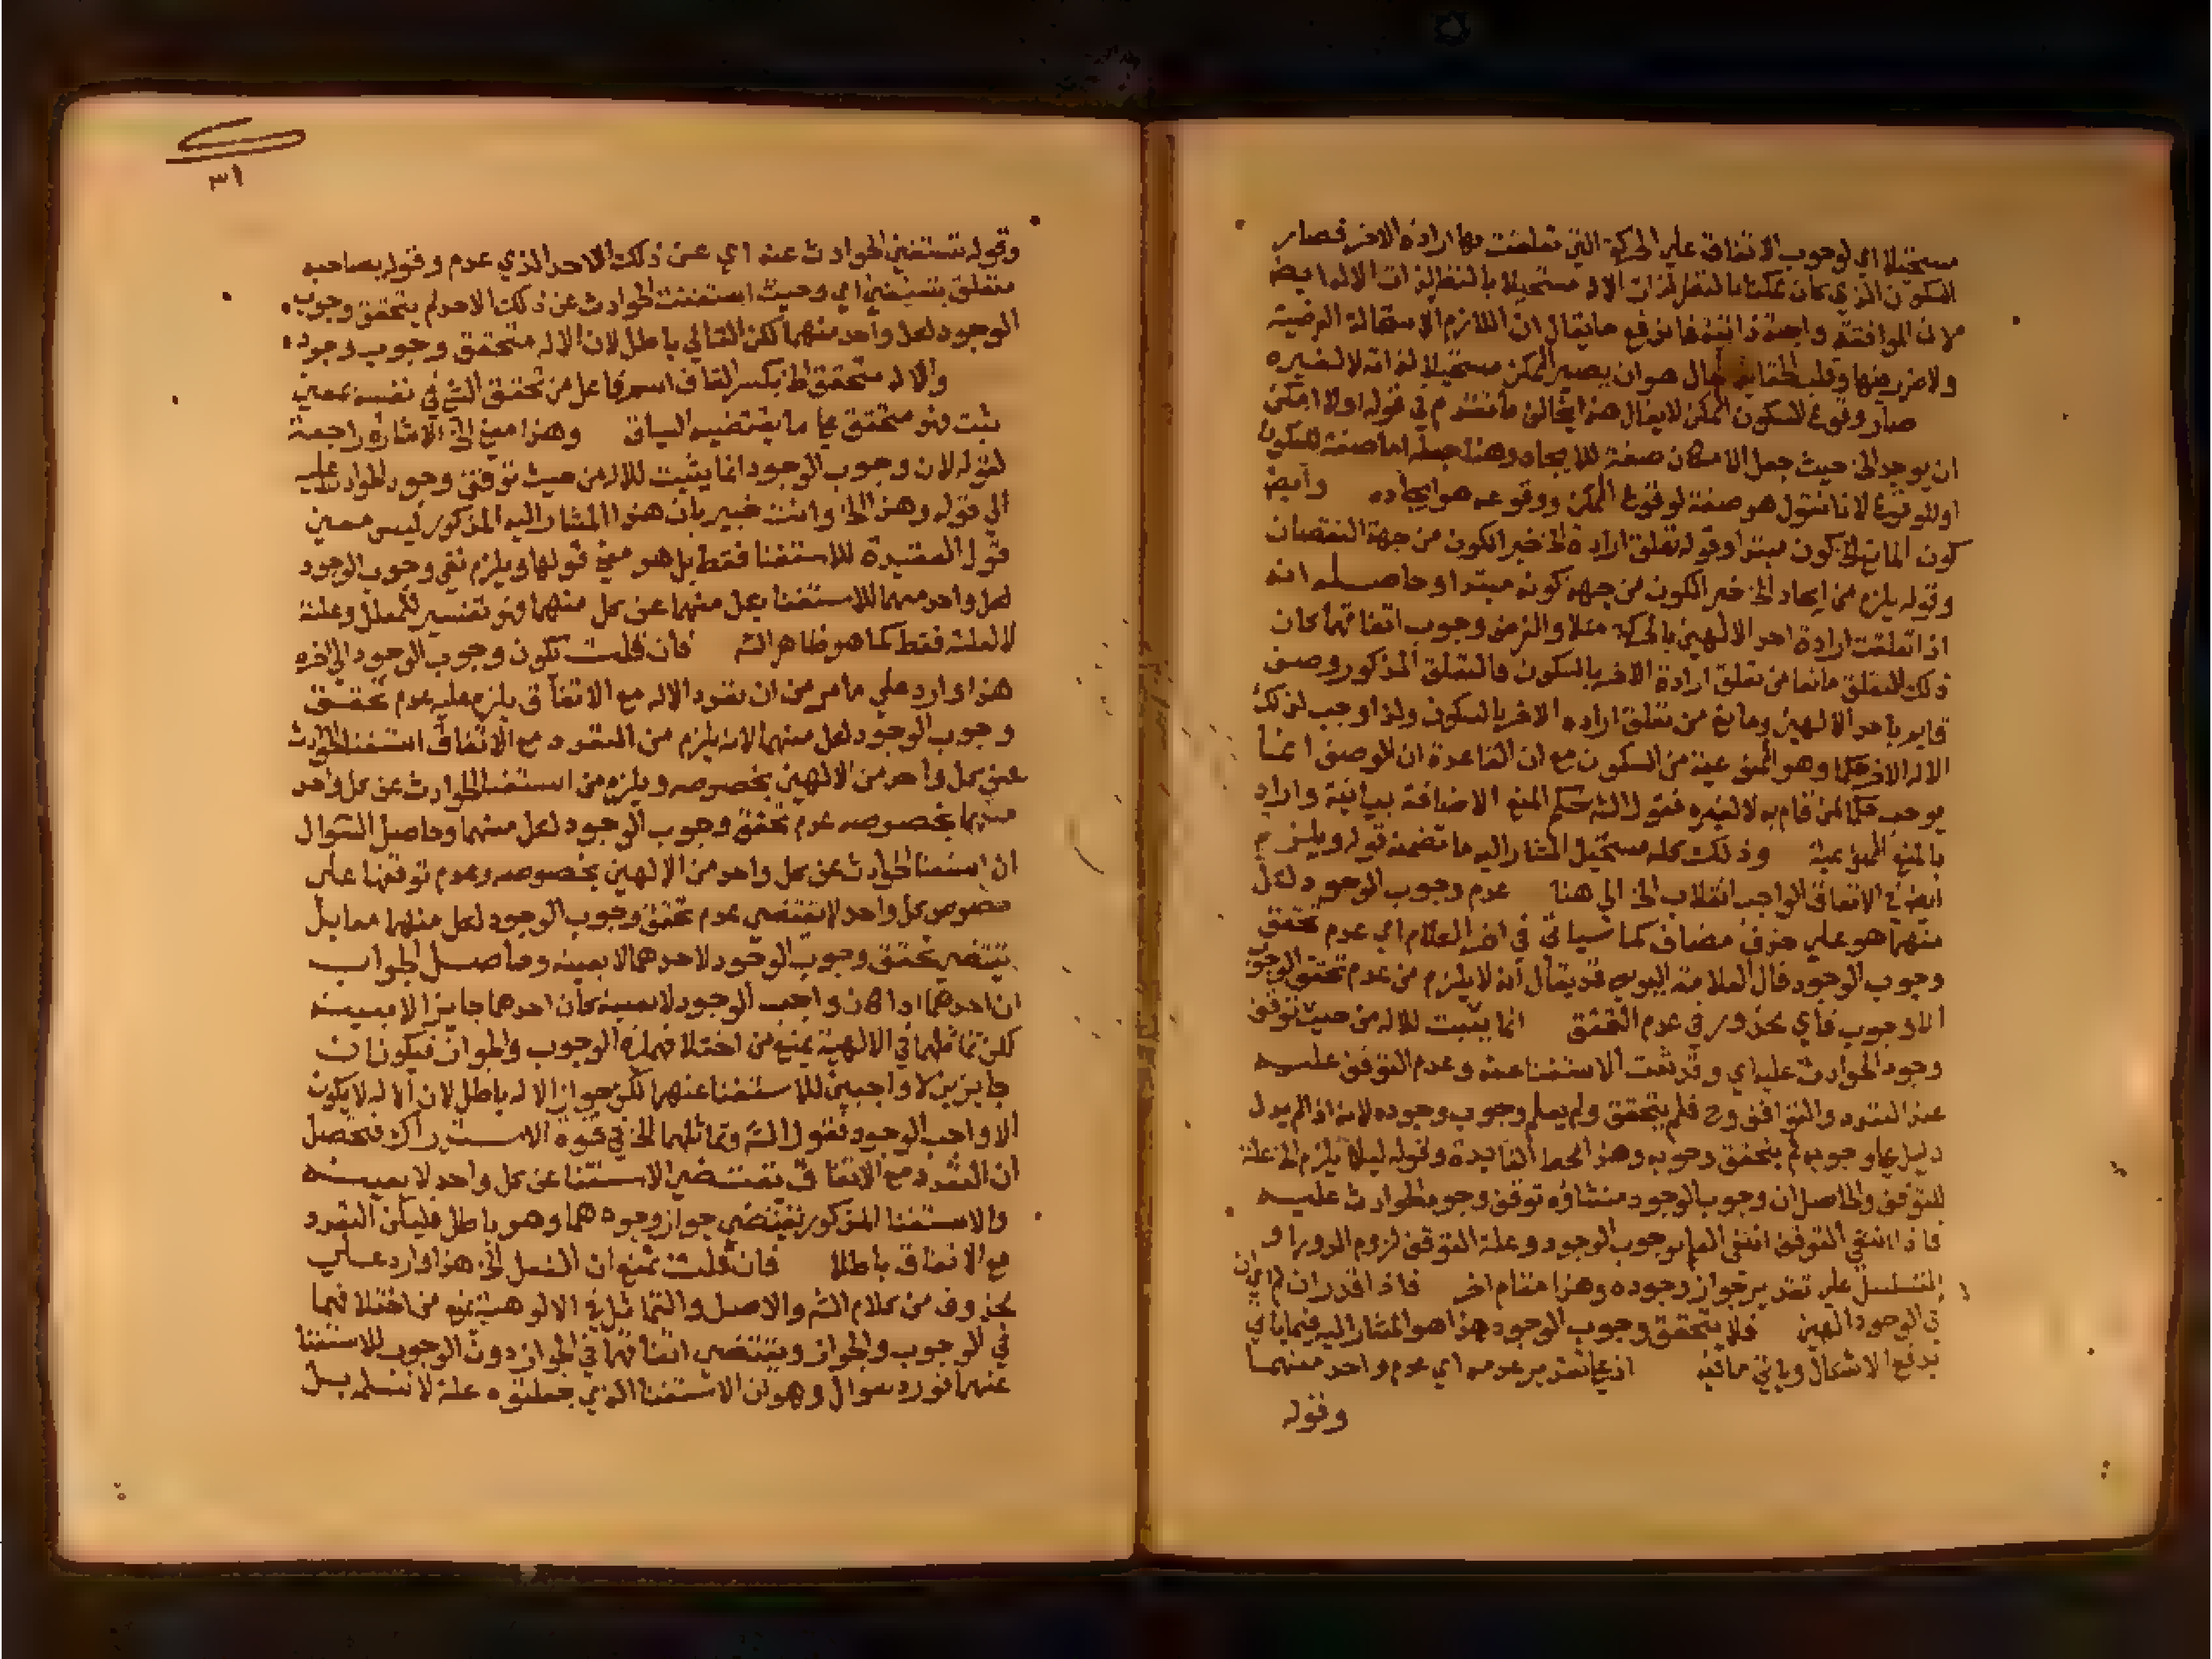 مستحيلا اي لوجوب الاتفاق علي الحركة التي تعلقت بها ارادة الاخر فصار
السكون الذي كان ممكنا بالنظر لذات الاله مستحيلا بالنظر لذات الاله ايضا
لان الموافقة واجبة ذاتية فاندفع ما يقال ان اللازم الاستحالة العرضية
ولا ضرر فيها وقلب الحقايق المحال هو ان يصير الممكن مستحيلا لذاته لا لغيره
صار وقوع السكون الممكن لا يقال هذا يخالف ما تقدم في قوله اولا امكن
ان يوجد الخ حيث جعل الامكان صفة للايجاد وهنا جعله اما صفة للسكون
او للوقوع لانا نقول هو صفة لوقوع الممكن ووقوعه هو ايجاده وايضا
كون المانع الخ كون مبتدا وقوله تعلق ارادة الخ خبر الكون من جهة النقصان
وقوله يلزم من ايجاد الخ خبر الكون من جهة كونه مبتدا وحاصله انه
اذا تعلقت ارادة احد الالهين بالحركة مثلا والفرض وجوب اتفاقهما كان
ذلك التعلق مانعا من تعلق ارادة الاخر بالسكون فالتعلق المذكور وصف
قايم باحد الالهين ومانع من تعلق ارادة الاخر بالسكون ولذا اوجب لذلك
الاله الاخر حكما وهو المنع عينه من السكون مع ان القاعدة ان الوصف انما
يوجب حكما لمن قام به لا لغيره فقول الش حكم المنع الاضافة بيانية واراد
بالمنع وذلك كله مستحيل المشار اليه ما تضمنه قوله ويلزم
ايضا في الاتفاق الواجب انقلاب الخ الي هنا عدم وجوب الوجود لكل
منهما هو علي حذف مضاف كما سياتي في اخر الكلام اي عدم تحقق
وجوب الوجود قال العلامة اليوسي قد يقال انه لا يلزم من عدم تحقق الوجوب
الوجوب فاي محذور في عدم التحقق انما يثبت للاله من حيث توقف
وجود الحوادث عليه اي وقد ثبت الاستغنا عنه وعدم التوقف عليه
عند التعدد والتوافق وح فلم يتحقق ولم يعلم وجوب وجوده لانه اذا لم يدل
دليل علي وجوبه لم يتحقق وجوبه وهذا محط الفايدة وقوله ليلا يلزم الخ علة
للتوقف والحاصل ان وجوب الوجود منشاؤه توقف وجود الحوادث عليه
فاذا انتفي التوقف انتفي العلم بوجوب الوجود وعلة التوقف لزوم الدور او
التسلسل علي تقدير جواز وجوده وهذا مقام اخر فاذا قدر ان اي ان
في الوجود الهين فلا يتحقق وجوب الوجود هذا هو المشار اليه فيما ياتي
بدفع الاشكال وياتي ما فيه اذ علي تقدير عدمه اي عدم واحد منهما
وقوله
٣١
وقوله تستغني الحوادث عنه اي عن ذلك الاحد الذي عدم وقوله بصاحبه
متعلق بتستغني اي وحيث استغنت الحوادث عن ذلك الاحد لم يتحقق وجوب
الوجود لكل واحد منهما لكن التالي باطل لان الاله متحقق وجوب وجوده
والاله متحقق الخ بكسر القاف اسم فاعل من تحقق الشي في نفسه بمعني
ثبت فهو متحقق علي ما يقتضيه السياق وهذا معني الخ الاشارة راجعة
لقوله لان وجوب الوجود انما يثبت للاله من حيث توقف وجود الحوادث عليه
الي قوله وهذا الخ وانت خبير بان هذا المشار اليه المذكور ليس معني
قول العقيدة للاستغنا فقط بل هو معني قولها ويلزم نفي وجوب الوجود
لكل واحد منهما للاستغنا بكل منهما عن كل منهما فهو تفسير للمعلل وعلته
لا لعلته فقط كما هو ظاهر الش فان قلت تكون وجوب الوجود الي اخره
هذا وارد علي ما مر من ان تعدد الاله مع الاتفاق يلزم عليه عدم تحقق
وجوب الوجود لكل منهما لانه يلزم من التعدد مع الاتفاق استغنا الحوادث
عن كل واحد من الالهين بخصوصه ويلزم من استغنا الحوادث عن كل واحد
منهما بخصوصه عدم تحقق وجوب الوجود لكل منهما وحاصل السوال
ان استغنا الحوادث عن كل واحد من الالهين بخصوصه وعدم توقفها علي
خصوص كل واحد لا يقتضي عدم تحقق وجوب الوجود لكل منهما معا بل
يقتضي تحقق وجوب الوجود لاحدهما لا بعينه وحاصل الجواب
ان احدهما اذا كان واجب الوجود لا بعينه كان احدهما جايزا لا بعينه
لكن تماثلهما في الالهية يمنع من اختلافهما في الوجوب والجواز فيكونان
جايزين لا واجبين للاستغنا عنهما لكن جواز الاله باطل لان الاله لا يكون
الا واجب الوجود فقول الش وتماثلهما الخ في قوة الاستدراك فتحصل
ان التعدد مع الاتفاق يقتضي الاستغنا عن كل واحد لا بعينه
والاستغنا المذكور يقتضي جواز وجودهما وهو باطل فليكن التعدد
مع الاتفاق باطلا فان قلت نمنع ان الفعل الخ هذا وارد علي
محذوف من كلام الش والاصل والتماثل في الالوهية يمنع من اختلافهما
في الوجوب والجواز ويقتضي اتفاقهما في الجواز دون الوجوب للاستغنا
عنهما فورد سوال وهو ان الاستغنا الذي جعلتوه علة لا نسلمه بل